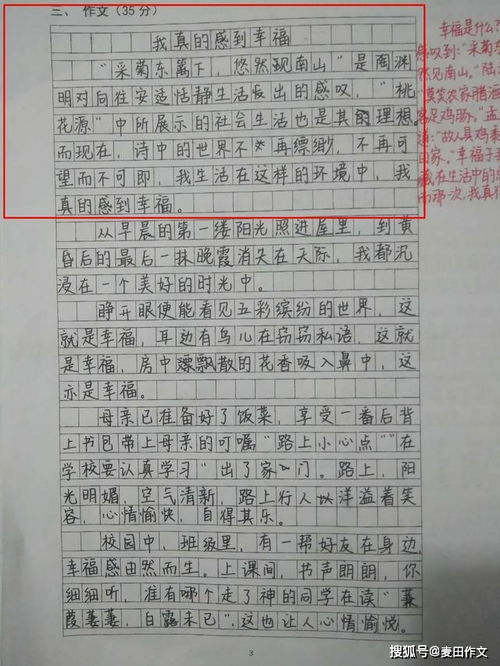 三、作文（35分）
我真的感到幸福
“采菊东篱下，悠然现南山”是陶渊
明对向往安适恬静生活发出的感叹，“桃
花源”中所展示的社会生活也是其理想。
而现在，诗中的世界不再缥缈，不再可
望而不可即，我生活在这样的环境中，我
真的感到幸福。
从早晨的第一缕阳光照进屋里，到黄
昏后的最后一抹晚霞消失在天际，我都沉
浸在一个美好的时光中。
睁开眼便能看见五彩缤纷的世界，这
就是幸福，耳边有鸟儿在窃窃私语，这就
是幸福，房中飘散的花香吸入鼻中，这
亦是幸福。
母亲已准备好了饭菜，享受一番后背
上书包带上母亲的叮嘱“路上小心点”“在
学校要认真学习”出了家门。路上，阳
光明媚，空气清新，路上行人以洋溢着笑
容，心情愉快，自得其乐。
校园中，班级里，有一帮好友在身边，
幸福感由然而生。上课间，书声朗朗，你
细细听，准有哪个走了神的同学在读“蒹
葭萋萋，白露未已”，这也让人心情愉悦。
3
幸福是什么？
感叹到：“采菊东
然见南山。”陆
“莫笑农家腊酒
客足鸡豚。”孟
道：“故人具鸡黍
田家。”幸福于
藏在生活中的
而那一次，我真
搜狐号@麦田作文